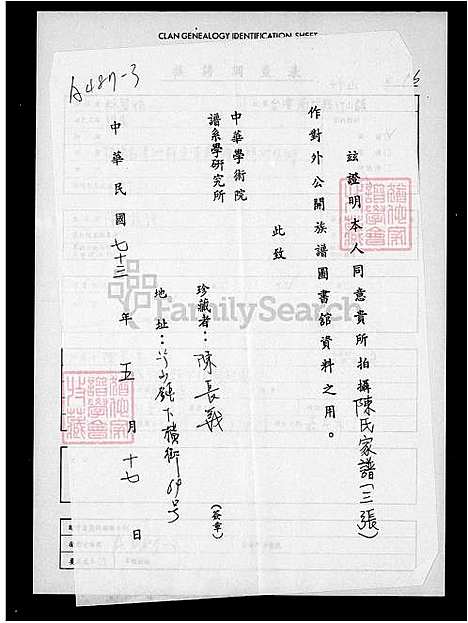 CLAN GENEALOGY IDENTIFICATION SHEET
A487-3
茲證明本人同意貴所拍攝陳氏家譜(三張)
作對外公開族譜圖書館資料之用。
此致
中華學術院
譜系學研究所
珍藏者：陳長義 (簽章)
地址：竹山鎮下橫街69号
中華民國七十三年五月十七日
FamilySearch